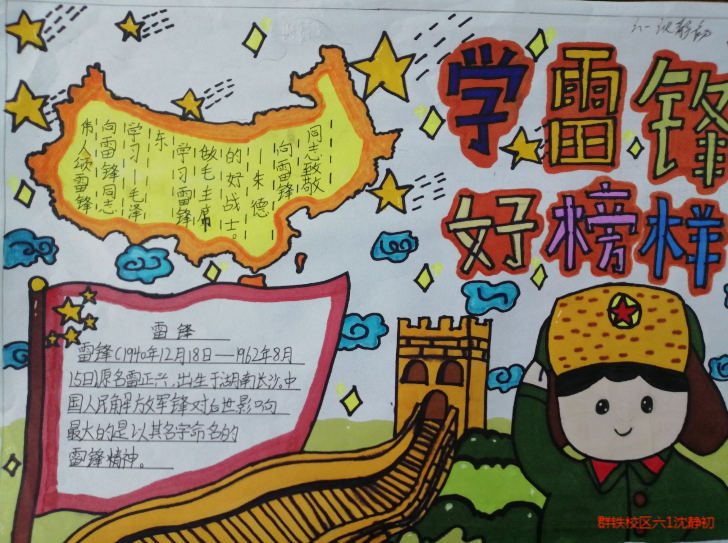 六一 沈静初
学雷锋
好榜样
伟人颂雷锋
向雷锋同志
学习—毛泽
东
学习雷锋
做毛主席
的好战士。
—朱德
向雷锋
同志致敬
雷锋
雷锋(1940年12月18日—1962年8月
15日)原名雷正兴,出生于湖南长沙。中
国人民解放军锋对后世影响
最大的是以其名字命名的
雷锋精神。
群铁校区六1沈静初